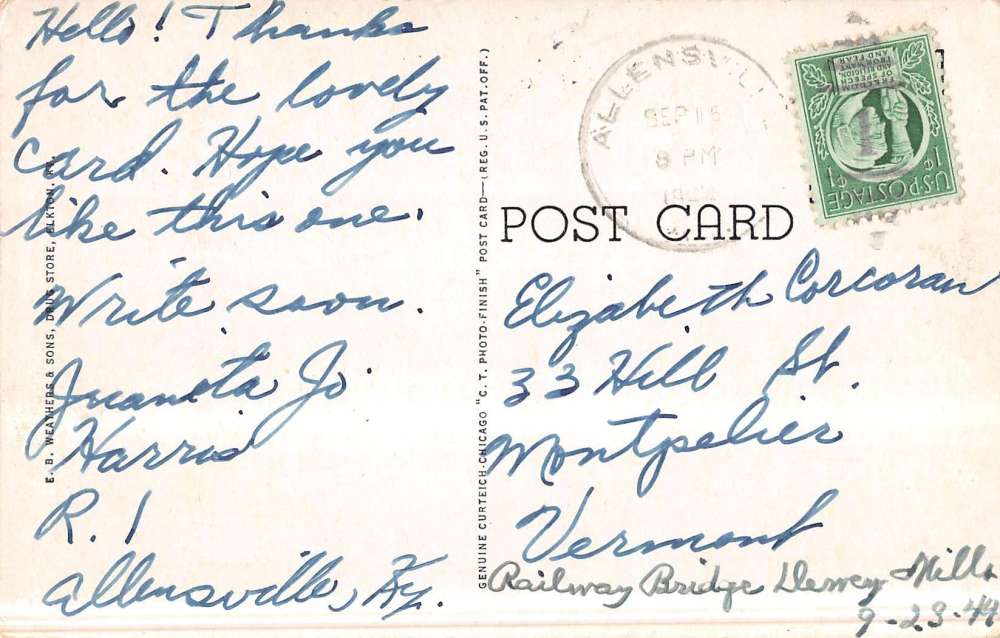 Hello! Thanks
for the lovely
card. Hope you
like this one.
Write soon.
Juaneta Jo
Harris
R. 1
Allensville, Ky.
E. B. WEATHERS & SONS, DRUG STORE, ELKTON, KY.
GENUINE CURTEICH-CHICAGO "C. T. PHOTO-FINISH" POST CARD—(REG. U. S. PAT. OFF.)
SEP 15
8 PM
U.S. POSTAGE
1¢ 1¢
FREEDOM
OF SPEECH
AND RELIGION
FROM WANT
AND FEAR
POST CARD
Elizabeth Corcoran
33 Hill St.
Montpelier
Vermont
Railway Bridge Dewey Mills
9-23-44